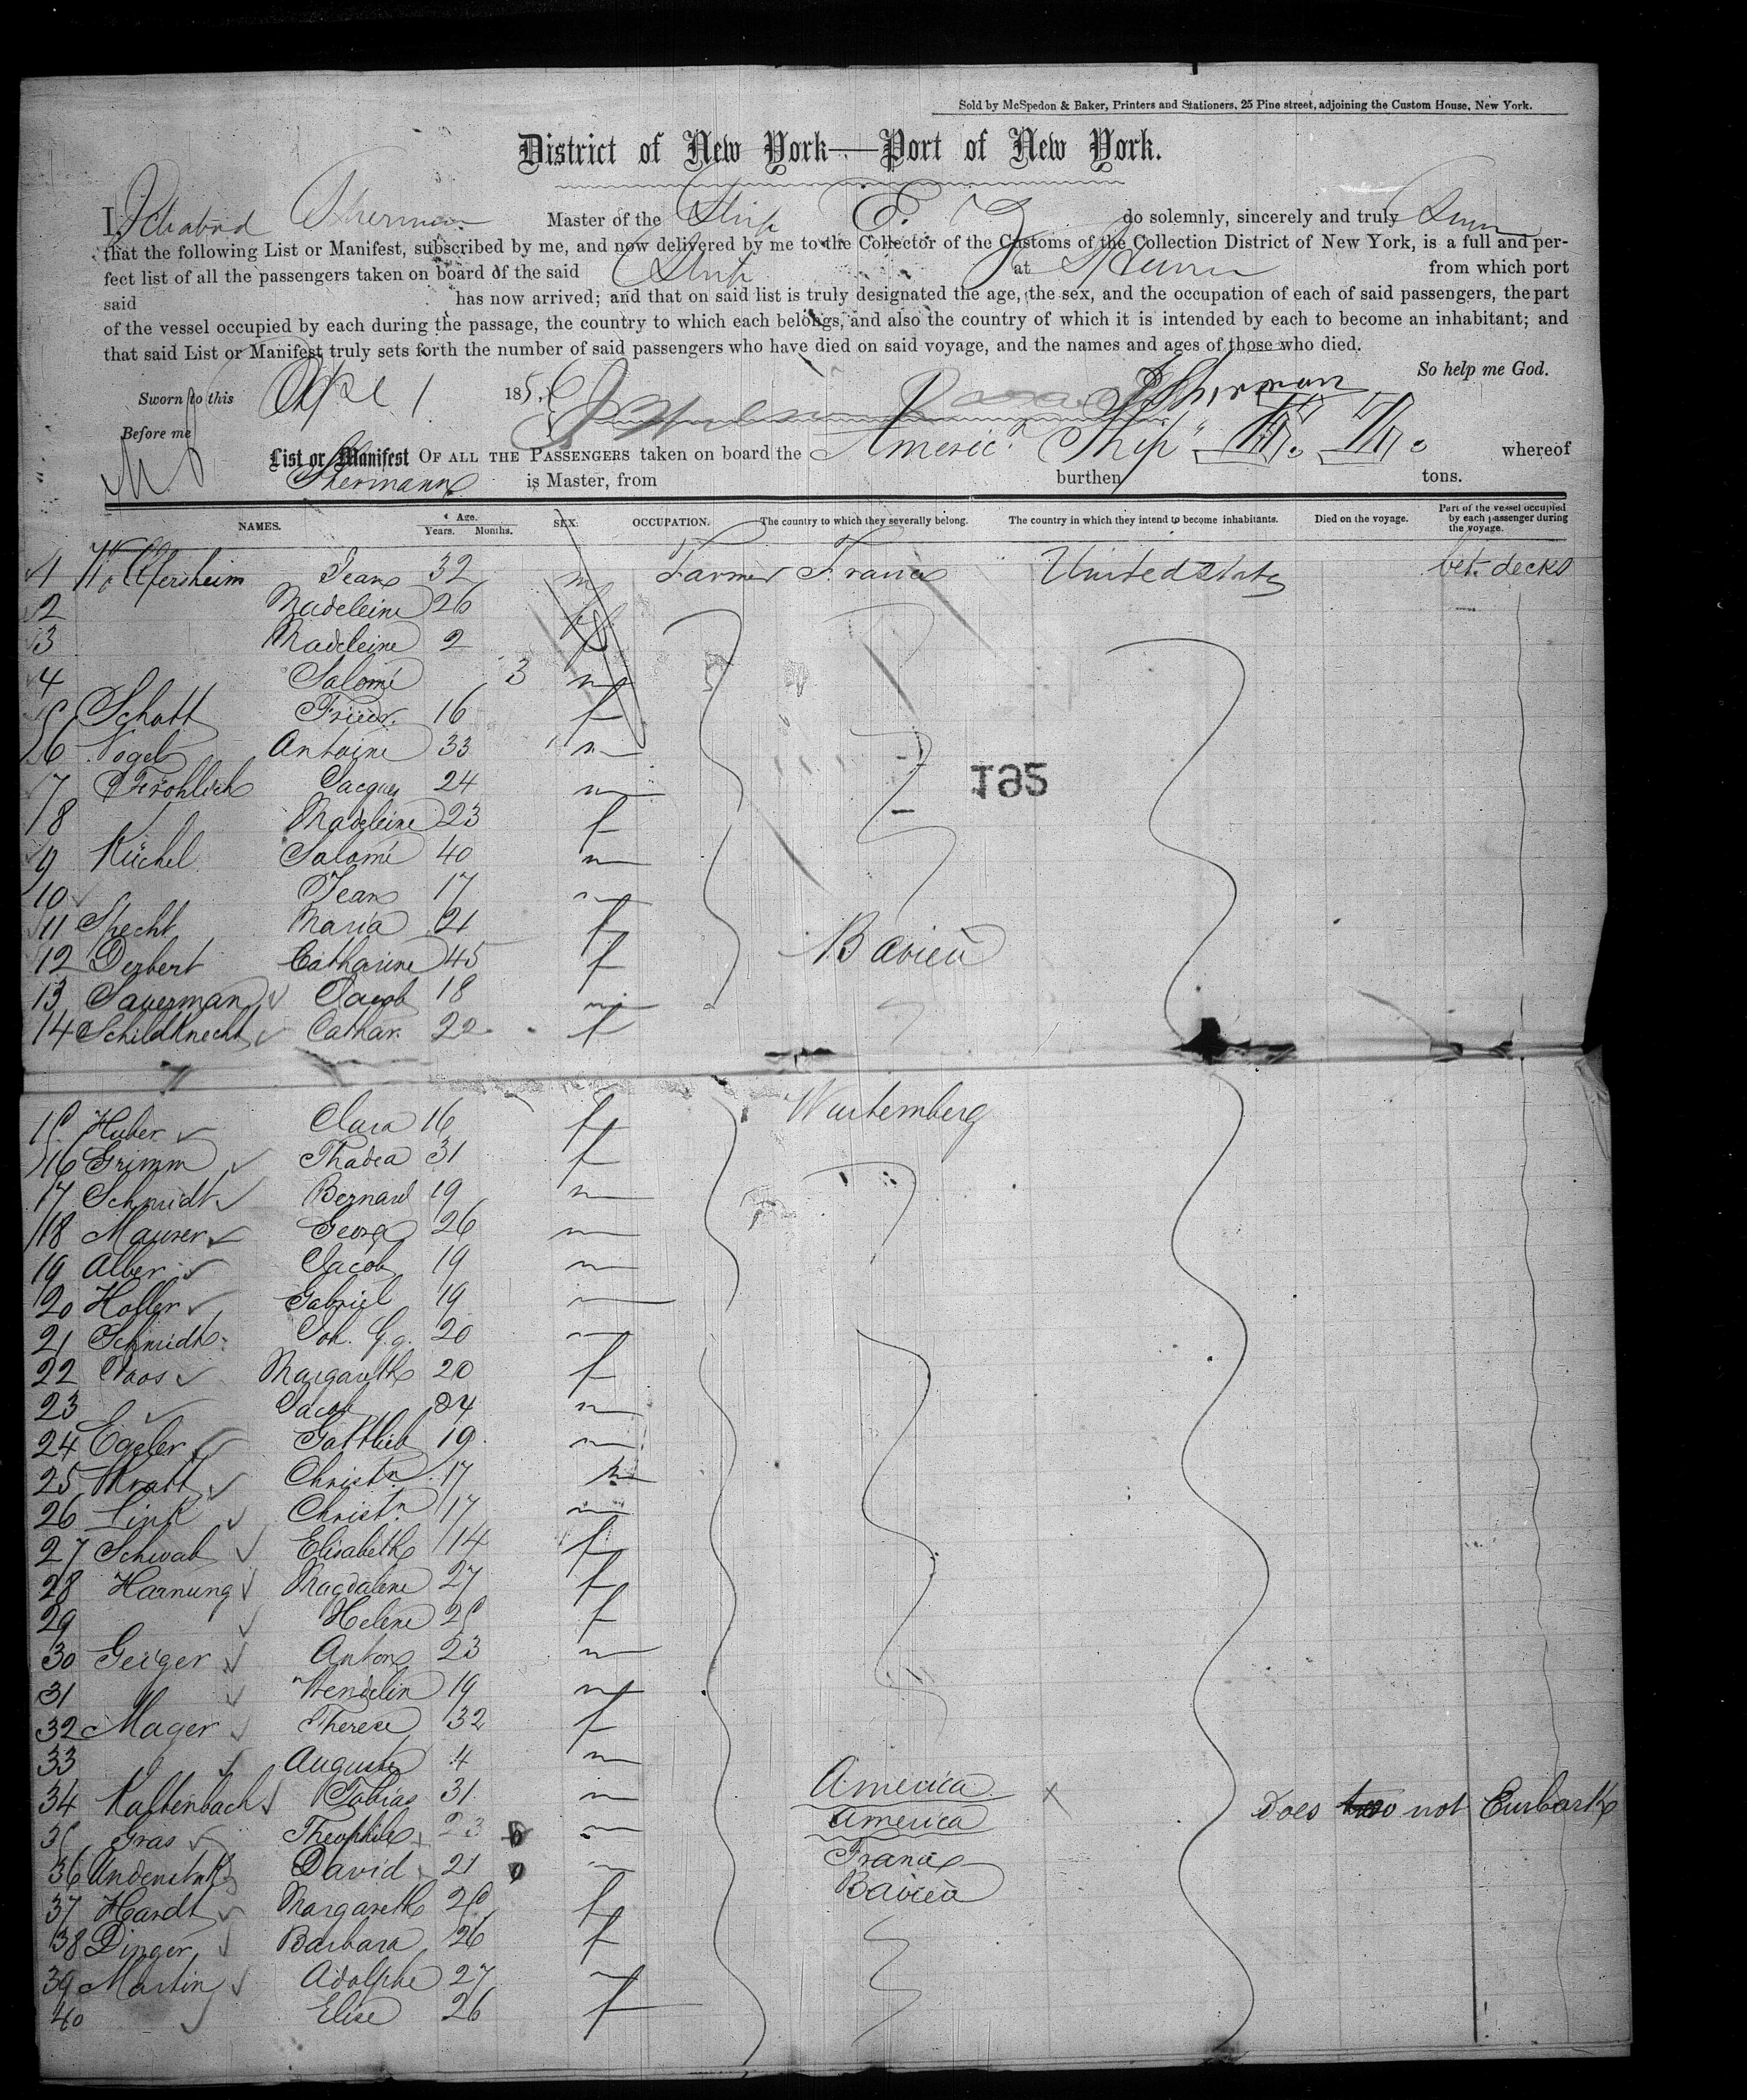 Sold by McSpedon & Baker, Printers and Stationers, 25 Pine street, adjoining the Custom House, New York.
District of New York—Port of New York.
I, Ichabod Sherman Master of the Ship E. Z do solemnly, sincerely and truly
that the following List or Manifest, subscribed by me, and now delivered by me to the Collector of the Customs of the Collection District of New York, is a full and per-
fect list of all the passengers taken on board of the said Ship at from which port
said has now arrived; and that on said list is truly designated the age, the sex, and the occupation of each of said passengers, the part
of the vessel occupied by each during the passage, the country to which each belongs, and also the country of which it is intended by each to become an inhabitant; and
that said List or Manifest truly sets forth the number of said passengers who have died on said voyage, and the names and ages of those who died.
So help me God.
Sworn to this Apl 1 1856 Sherman
Before me
List or Manifest OF ALL THE PASSENGERS taken on board the Americ. Ship whereof
Shermann is Master, from burthen tons.
NAMES. Age. Years. Months. SEX. OCCUPATION. The country to which they severally belong. The country in which they intend to become inhabitants. Died on the voyage. Part of the vessel occupied by each passenger during the voyage.
1 Wolfersheim Jean 32 m Farmer France United States bet. decks
2 Madeleine 26 f
3 Madeleine 2 f
4 Salomé 3 m
5 Schott Friedr. 16 f
6 Vogel Antoine 33 m
7 Fröhlich Jacques 24 m
165
8 Madeleine 23 f
9 Küchel Salomé 40 m
10 Jean 17 m
11 Specht Maria 21 f
12 Derbert Catharine 45 f Baviera
13 Sauerman Jacob 18 m
14 Schildknecht Cathar. 22 f
15 Huber Clara 16 f Wurtemberg
16 Grimm Thadea 31 f
17 Schmidt Bernard 19 m
18 Maurer Georg 26 m
19 Alber Jacob 19 m
20 Holler Gabriel 19 m
21 Schmidt Joh. G.g. 20 m
22 Margareth 20 f
23 Jacob 24 m
24 Egeler Gottlieb 19 m
25 Kratt Christn. 17 m
26 Link Christn. 17 m
27 Schwab Elisabeth 14 f
28 Harnung Magdalene 27 f
29 Helene 25 f
30 Geiger Anton 23 m
31 Wendelin 19 m
32 Mager Therese 32 f
33 Auguste 4 m
34 Kaltenbach Tobias 31 m America Does not Embark
35 Gras Theophile 23 m America
36 David 21 m France
37 Hardt Margareth 25 f Baviera
38 Dinger Barbara 26 f
39 Martin Adolphe 27 m
40 Elise 26 f